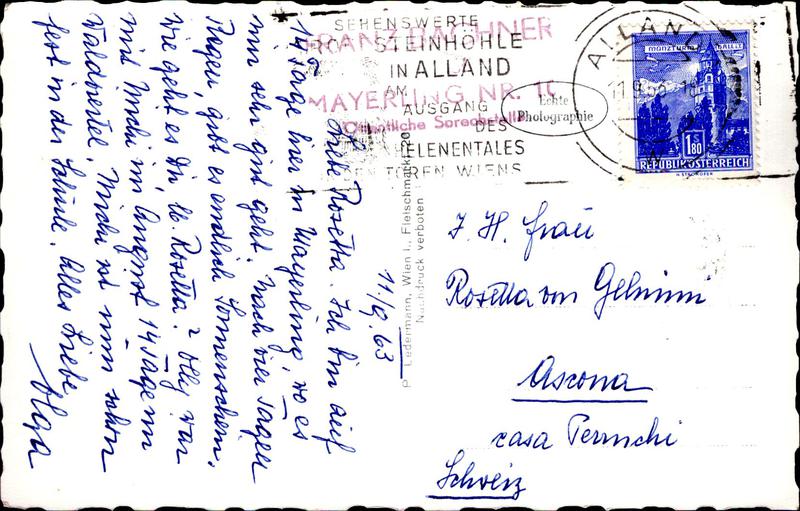 SEHENSWERTE
STEINHÖHLE
IN ALLAND
AM
AUSGANG
DES
HELENENTALES
DEN TOREN WIENS
FRANZ
MAYERLING NR. 10
Öffentliche Sprechstelle
Echte
Photographie
ALLAND
11.9.63
MÜNZTURM HALL I.T.
1.80
REPUBLIK ÖSTERREICH
11/9.63
Liebe Rosetta. Ich bin auf
14 Tage hier in Mayerling, wo es
mir sehr gut geht. Nach vier Tagen
Regen, gibt es endlich Sonnenschein.
Wie geht es Dir, lb. Rosetta? Olly war
mit Michi im August 14 Tage im
Waldviertel, Michi ist nun schon
fest in der Schule. Alles Liebe
Olga
P. Ledermann, Wien I., Fleischmarkt
Nachdruck verboten
I. H. Frau
Rosetta von
Ascona
casa
Schweiz